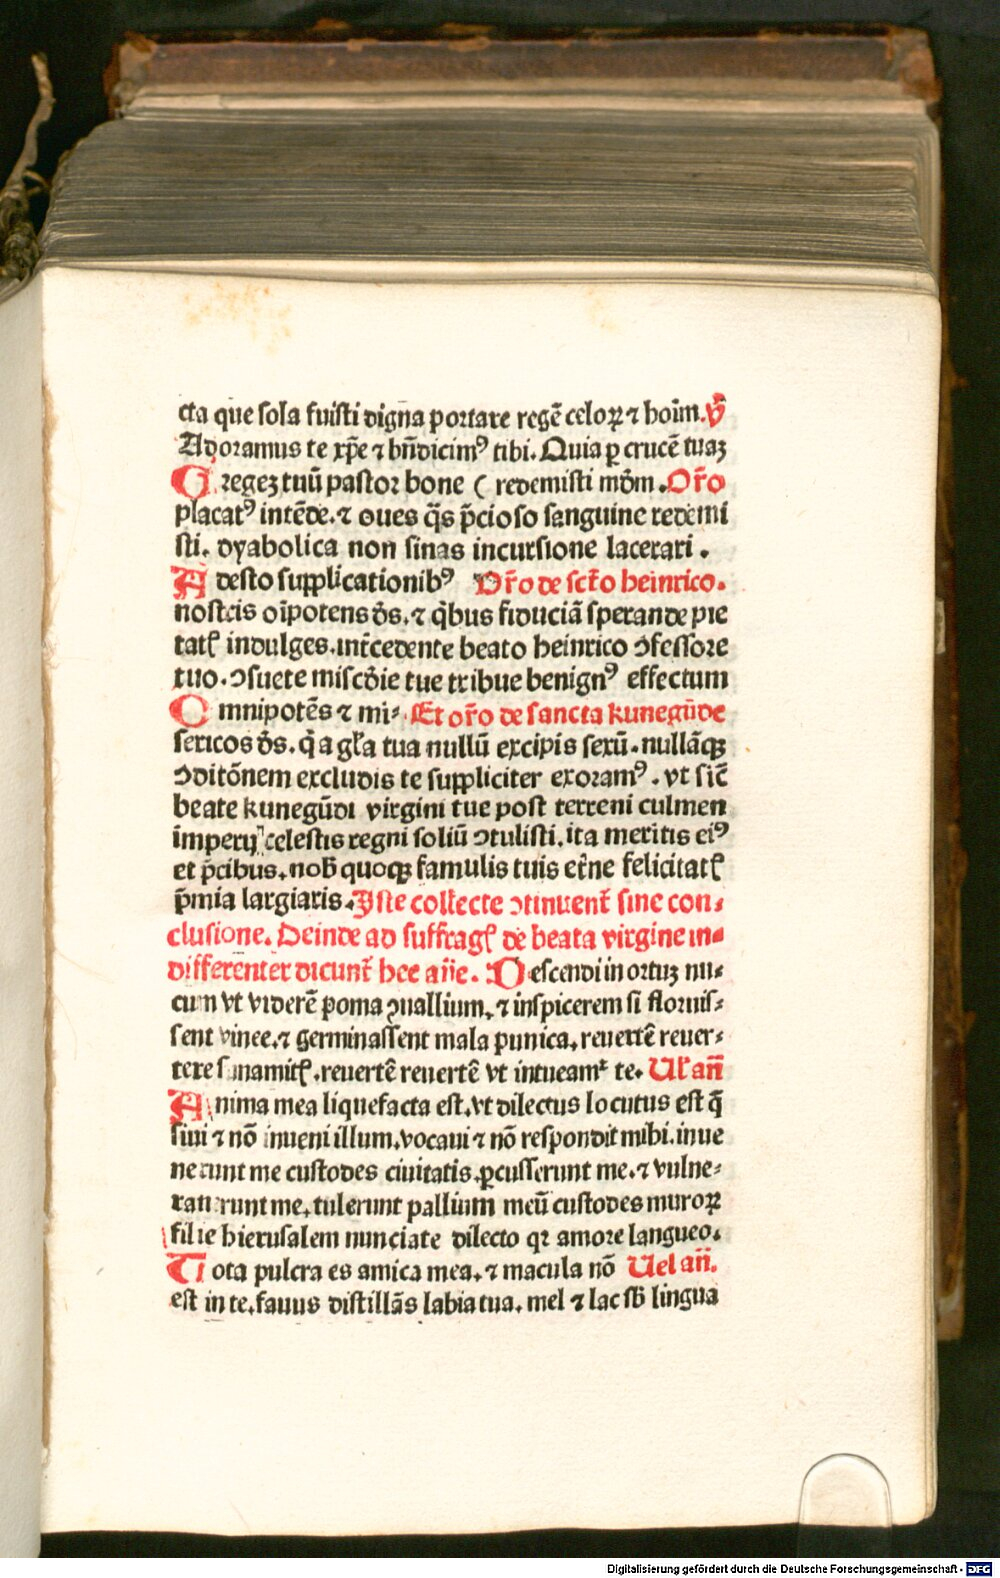 cta que sola fuisti digna portare regē celoꝝ ⁊ hoīm. V̄
Adoramus te xp̄e ⁊ bn̄dicimꝰ tibi. Quia ꝑ crucē tuaꝫ
Gregeꝫ tuū pastor bone ( redemisti mōm. Or̄o
placatꝰ intēde. ⁊ oues q̄s p̄cioso sanguine redemi
sti. dyabolica non sinas incursione lacerari.
Adesto supplicationibꝰ Or̄o de scto heinrico.
nostris oīpotens ds̄. ⁊ q̄bus fiduciā sperande pie
tatꝭ indulges. int̄cedente beato heinrico ↄfessore
tuo. ↄsuete misc̄die tue tribue benignꝰ effectum
Omnipotēs ⁊ mi⸗ Et or̄o de sancta kunegūde
sericos ds̄. q̄ a gr̄a tua nullū excipis sexū. nullāqꝫ
ↄditōnem excludis te suppliciter exoramꝰ. vt sic̄
beate kunegūdi virgini tue post terreni culmen
imperij celestis regni soliū ↄtulisti. ita meritis eiꝰ
et p̄cibus. nob̄ quoqꝫ famulis tuis et̄ne felicitatꝭ
p̄mia largiaris. Iste collecte ↄtinuent̄ sine con⸗
clusione. Deinde ad suffragꝭ de beata virgine in⸗
differenter dicunt̄ hec an̄e. Descendi in ortuꝫ nu⸗
cum vt viderē poma ꝯuallium. ⁊ inspicerem si floruis⸗
sent vinee. ⁊ germinassent mala punica. reuertē reuer⸗
tere sunamitꝭ. reuertē reuertē vt intueamᷣ te. Ul̄ an̄
Anima mea liquefacta est. vt dilectus locutus est q̄
siui ⁊ nō inueni illum. vocaui ⁊ nō respondit mihi. inue
nerunt me custodes ciuitatis. ꝑcusserunt me. ⁊ vulne⸗
rauerunt me. tulerunt pallium meū custodes muroꝝ
filie hierusalem nunciate dilecto qꝛ amore langueo.
Tota pulcra es amica mea. ⁊ macula nō Uel an̄.
est in te. fauus distillās labia tua. mel ⁊ lac sb̄ lingua
Digitalisierung gefördert durch die Deutsche Forschungsgemeinschaft - DFG